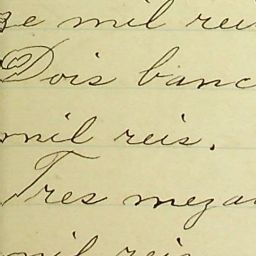 ze mil rei
Dois banc
mil reis.
Tres meza
mil reis